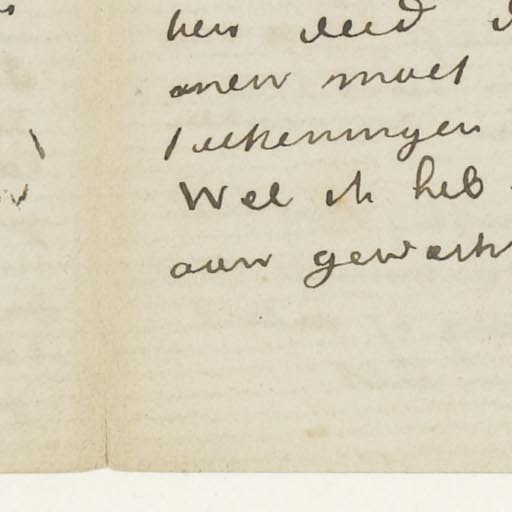 hen deed
men moet
teekeningen
Wel ik heb
aan gewerkt